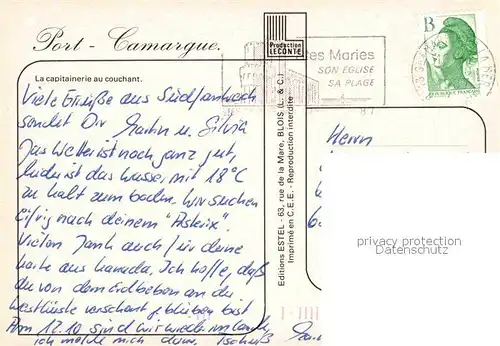 Port - Camargue.
La capitainerie au couchant.
Viele Grüße aus Südfrankreich
sendet Dir Martin u. Silvia
Das Wetter ist noch ganz gut,
leider ist das Wasser mit 18°C
zu kalt zum baden. Wir suchen
eifrig nach deinem "Asterix".
Vielen Dank auch für deine
Karte aus Kanada. Ich hoffe, daß
du von dem Erdbeben an der
Westküste verschont geblieben bist
Am 17.10 sind wir wieder im Lande,
ich melde mich dann. Tschüß
Production
LECONTE
Editions ESTEL - 63, rue de la Mare, BLOIS (L. & C.)
Imprimé en C.E.E. - Reproduction interdite
tes Maries
SON EGLISE
SA PLAGE
B
Herrn
privacy protection
Datenschutz